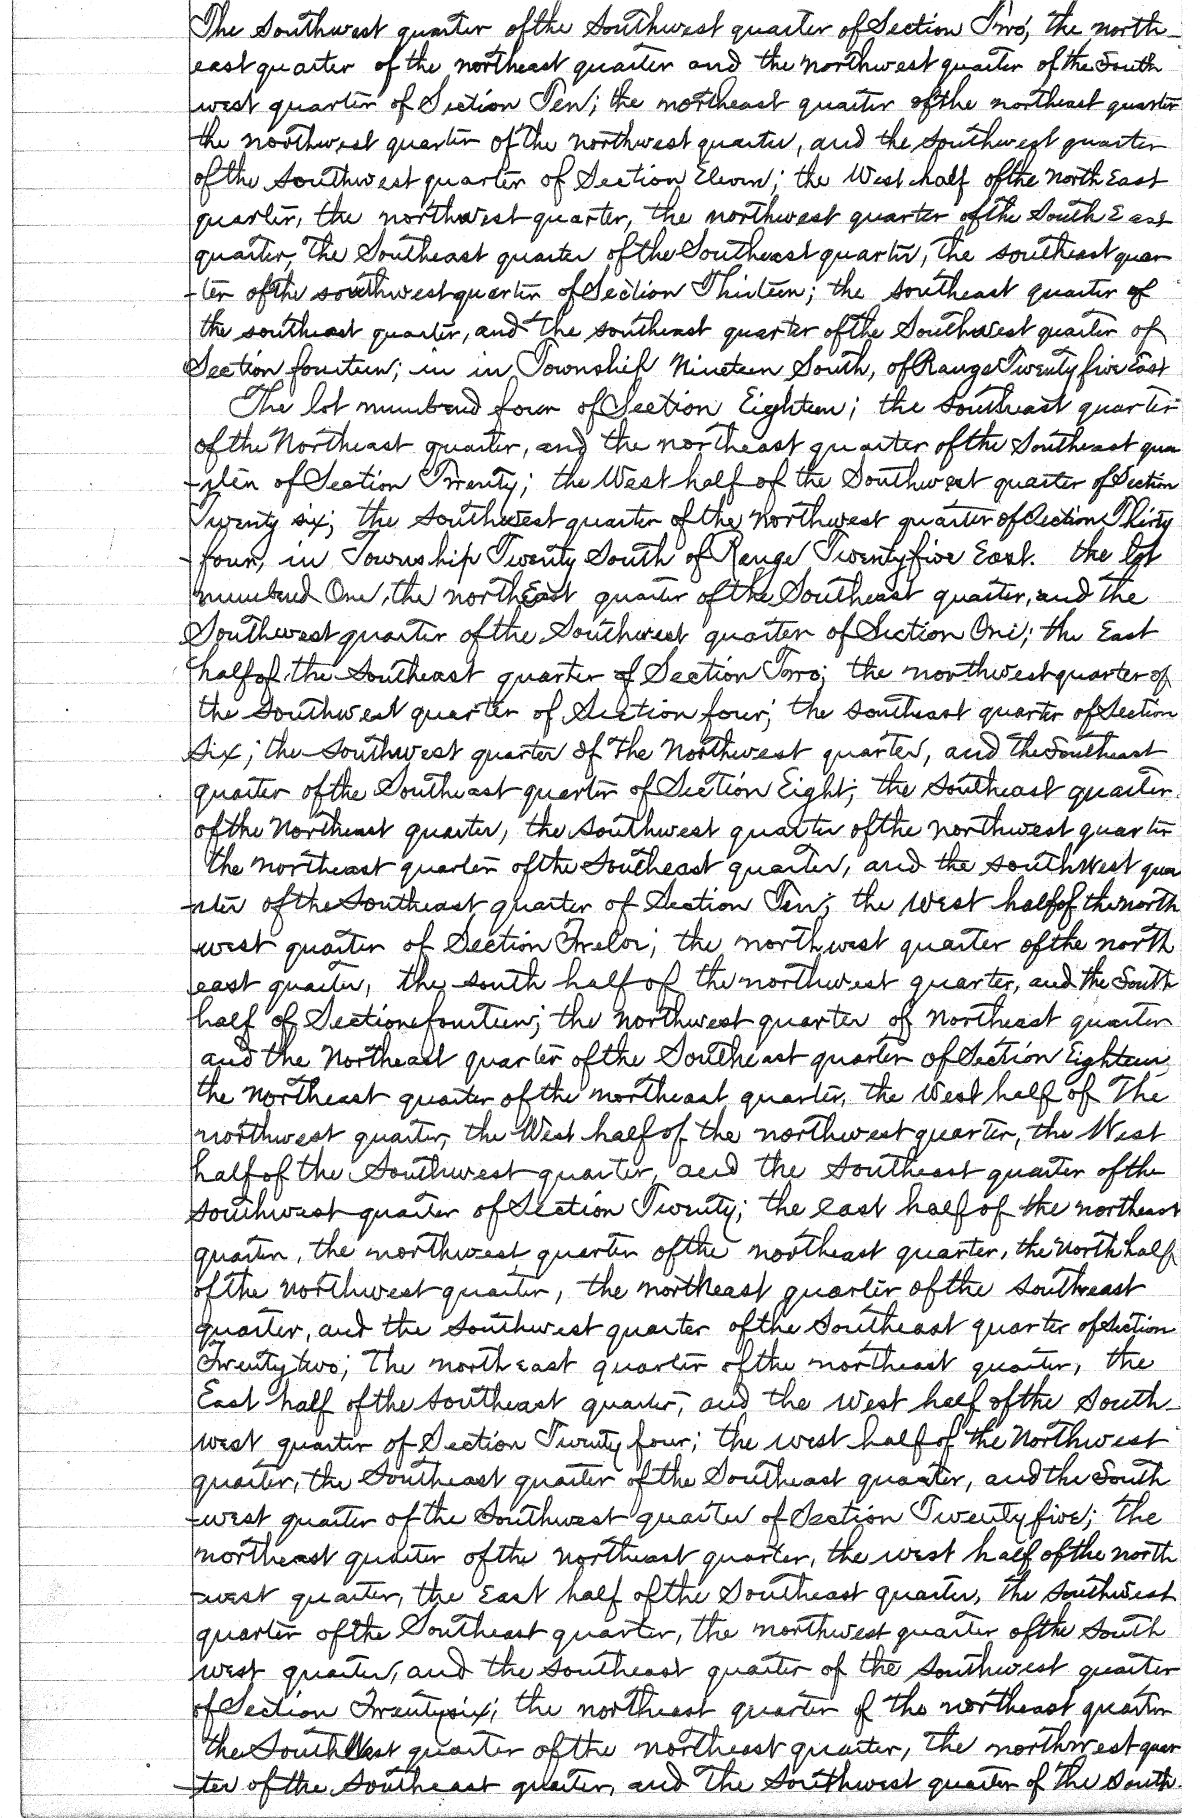 The Southwest quarter of the Southwest quarter of Section Two, the north-
east quarter of the northeast quarter and the northwest quarter of the South
west quarter of Section Ten; the northeast quarter of the northeast quarter
the northwest quarter of the northwest quarter, and the southwest quarter
of the Southwest quarter of Section Eleven; the West half of the North East
quarter, the northwest quarter, the northwest quarter of the South East
quarter, the Southeast quarter of the Southeast quarter, the southeast quar
-ter of the southwest quarter of Section Thirteen; the southeast quarter of
the southeast quarter, and the southeast quarter of the Southwest quarter of
Section fourteen; in in Township Nineteen South, of Range Twenty five East
The lot numbered four of Section Eighteen; the Southeast quarter
of the Northeast quarter, and the northeast quarter of the Southeast qua
-rter of Section Twenty; the West half of the Southwest quarter of Section
Twenty six; the Southwest quarter of the Northwest quarter of Section Thirty
-four, in Township Twenty South of Range Twenty five East. the lot
numbered One, the northEast quarter of the Southeast quarter, and the
Southwest quarter of the Southwest quarter of Section One; the East
half of the Southeast quarter of Section Two; the northwest quarter of
the Southwest quarter of Section four; the southeast quarter of Section
Six; the southwest quarter of the Northwest quarter, and the Southeast
quarter of the Southeast quarter of Section Eight; the Southeast quarter
of the Northeast quarter, the southwest quarter of the northwest quarter
the northeast quarter of the Southeast quarter, and the southwest qua
-rter of the Southeast quarter of Section Ten; the west half of the north
west quarter of Section Twelve; the northwest quarter of the north
east quarter, the south half of the northwest quarter, and the South
half of Section fourteen; the northwest quarter of Northeast quarter
and the Northeast quarter of the Southeast quarter of Section Eighteen,
the northeast quarter of the northeast quarter, the West half of The
northwest quarter, the West half of the northwest quarter, the West
half of the Southwest quarter, and the Southeast quarter of the
southwest quarter of Section Twenty; the east half of the northeast
quarter, the northwest quarter of the northeast quarter, the North half
of the northwest quarter, the northeast quarter of the southeast
quarter, and the Southwest quarter of the Southeast quarter of Section
Twenty two; The northeast quarter of the northeast quarter, the
East half of the Southeast quarter, and the west half of the South-
west quarter of Section Twenty four; the west half of the Northwest
quarter, the Southeast quarter of the Southeast quarter, and the South
-west quarter of the Southwest quarter of Section Twenty five; The
northeast quarter of the northeast quarter, the west half of the north
-west quarter, the East half of the Southeast quarter, the southwest
quarter of the Southeast quarter, the northwest quarter of the South
west quarter, and the southeast quarter of the Southwest quarter
of Section Twenty six; the northeast quarter of the northeast quarter
the SouthWest quarter of the northeast quarter, the northwest quar
-ter of the Southeast quarter, and The Southwest quarter of the South